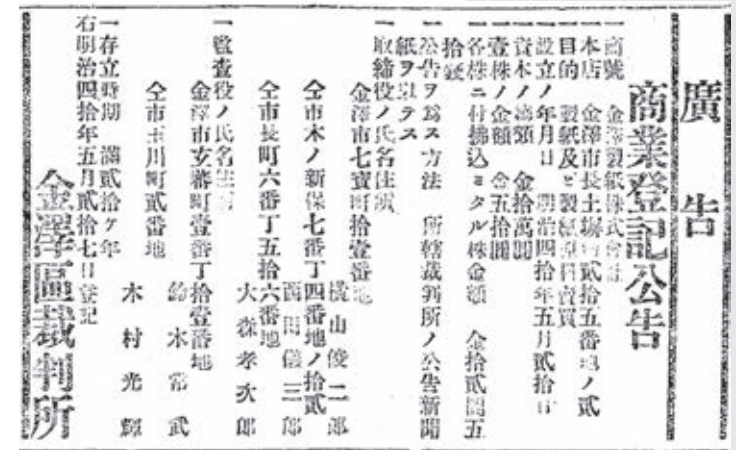 廣告
商業登記公告
一商號 金澤製紙株式會社
一本店 金澤市長土塀 貳拾五番地ノ貳
一目的 製紙及ヒ製紙原料賣買
一設立ノ年月日 明治四拾年五月貳拾 日
一資本ノ總額 金拾萬圓
一壹株ノ金額 金五拾圓
一各株ニ付拂込ミタル株金額 金拾貳圓五
拾錢
一公告ヲ爲ス方法 所轄裁判所ノ公告新聞
紙ヲ以テス
一取締役ノ氏名住所
金澤市七寶町拾壹番地
橫山俊二郎
仝市木ノ新保七番丁四番地ノ拾貳
西田儀三郎
仝市長町六番丁五拾六番地
大森孝次郎
一監査役ノ氏名住所
金澤市玄蕃町壹番丁拾壹番地
鈴木常武
仝市玉川町貳番地
木村光輝
一存立時期 滿貳拾ケ年
右明治四拾年五月貳拾七日登記
金澤區裁判所